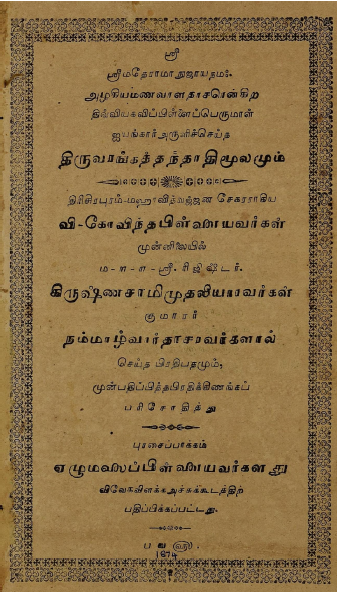 ஸ்ரீ
ஸ்ரீமதேராமாநுஜாயநம:.
அழகியமணவாளதாசரென்கிற
திவ்வியகவிப்பிள்ளைப்பெருமாள்
ஐயங்கார் அருளிச்செய்த
திருவரங்கத்தந்தாதிமூலமும்
திரிசிரபுரம்-மஹாவித்வஜ்ஜன சேகரராகிய
வி-கோவிந்தபிள்ளையவர்கள்
முன்னிலையில்
ம-ள-ள-ஸ்ரீ. ரிஜிஷ்டர்.
கிருஷ்ணசாமிமுதலியாரவர்கள்
குமாரர்
நம்மாழ்வார்தாசரவர்களால்
செய்த பிரதிபதமும்,
முன்பதிப்பித்தபிரதிக்கிணங்கப்
பரிசோதித்து
புரசைப்பாக்கம்
ஏழுமலைப்பிள்ளையவர்களது
விவேகவிளக்கஅச்சுக்கூடத்திற்
பதிப்பிக்கப்பட்டது.
1874